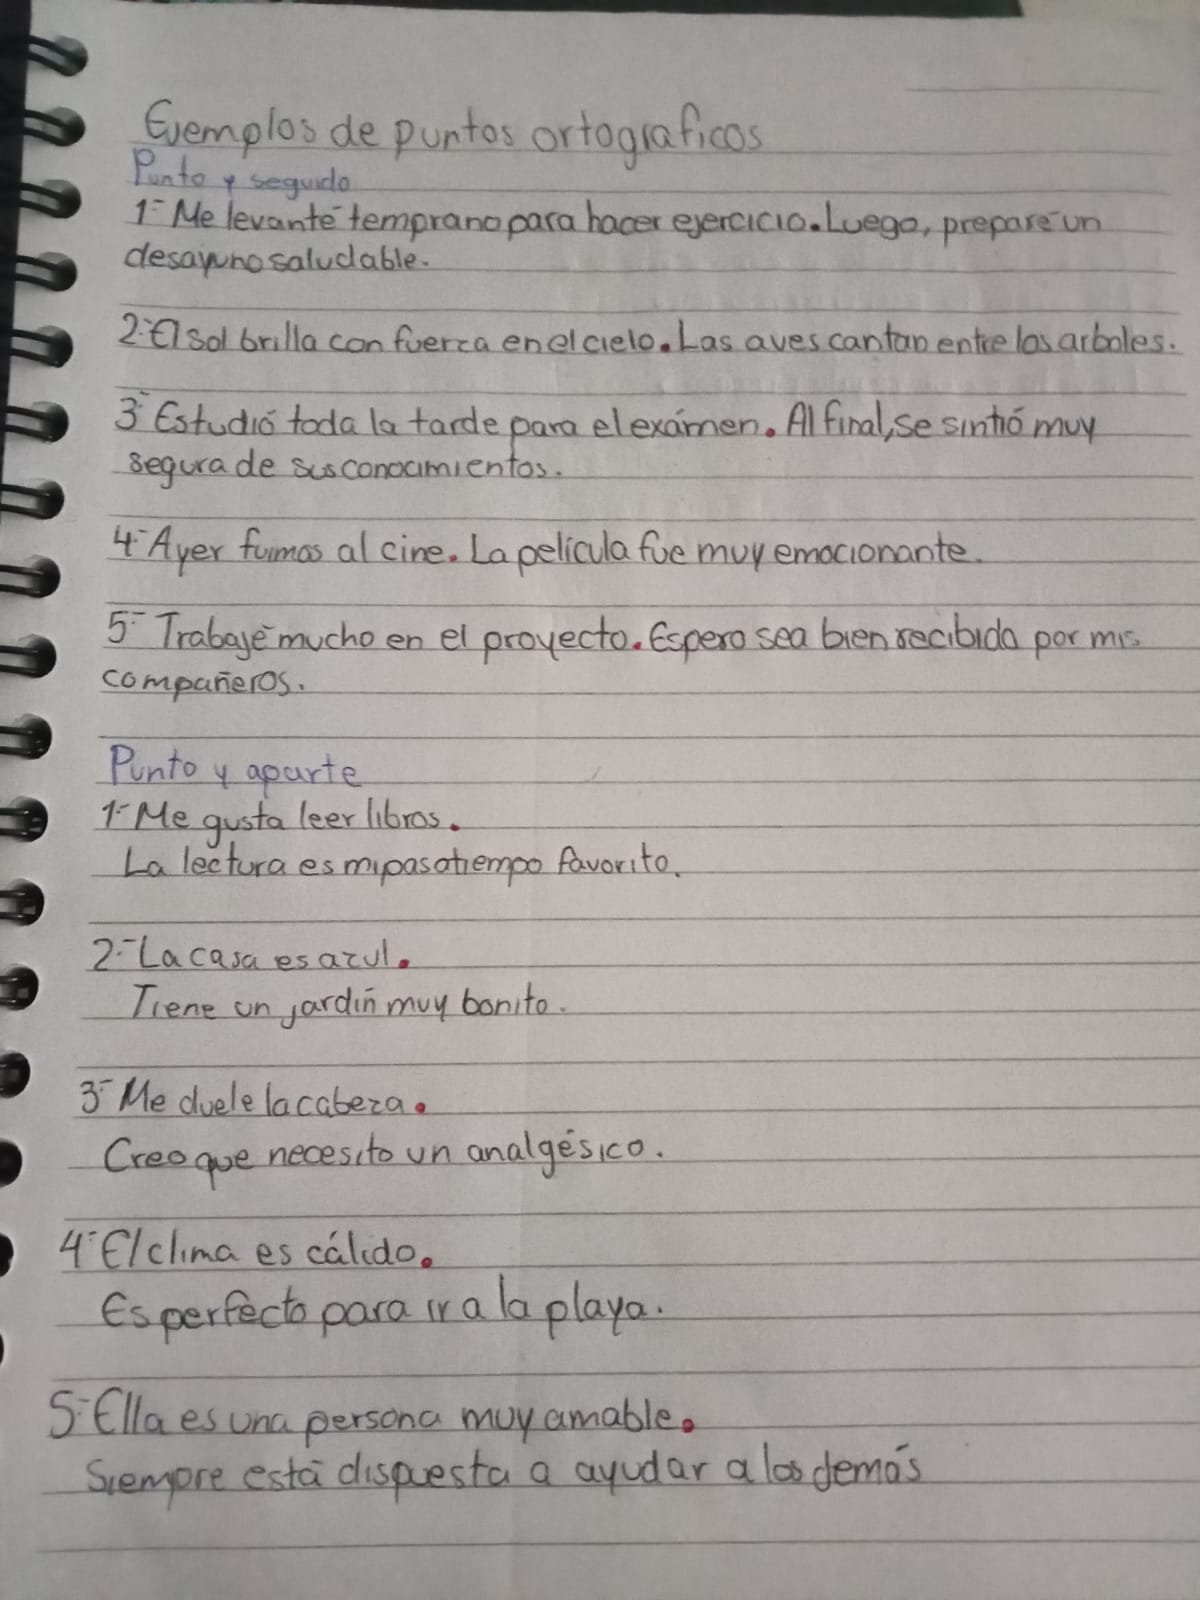 Ejemplos de puntos ortograficos
Punto y seguido
1- Me levanté temprano para hacer ejercicio. Luego, preparé un
desayuno saludable.
2.- El sol brilla con fuerza en el cielo. Las aves cantan entre los arboles.
3- Estudió toda la tarde para el exámen. Al final, se sintió muy
segura de sus conocimientos.
4.- Ayer fuimos al cine. La película fue muy emocionante.
5- Trabajé mucho en el proyecto. Espero sea bien recibido por mis
compañeros.
Punto y aparte
1- Me gusta leer libros.
La lectura es mi pasatiempo favorito.
2.- La casa es azul.
Tiene un jardín muy bonito.
3- Me duele la cabeza.
Creo que necesito un analgésico.
4- El clima es cálido.
Es perfecto para ir a la playa.
5- Ella es una persona muy amable.
Siempre está dispuesta a ayudar a los demás